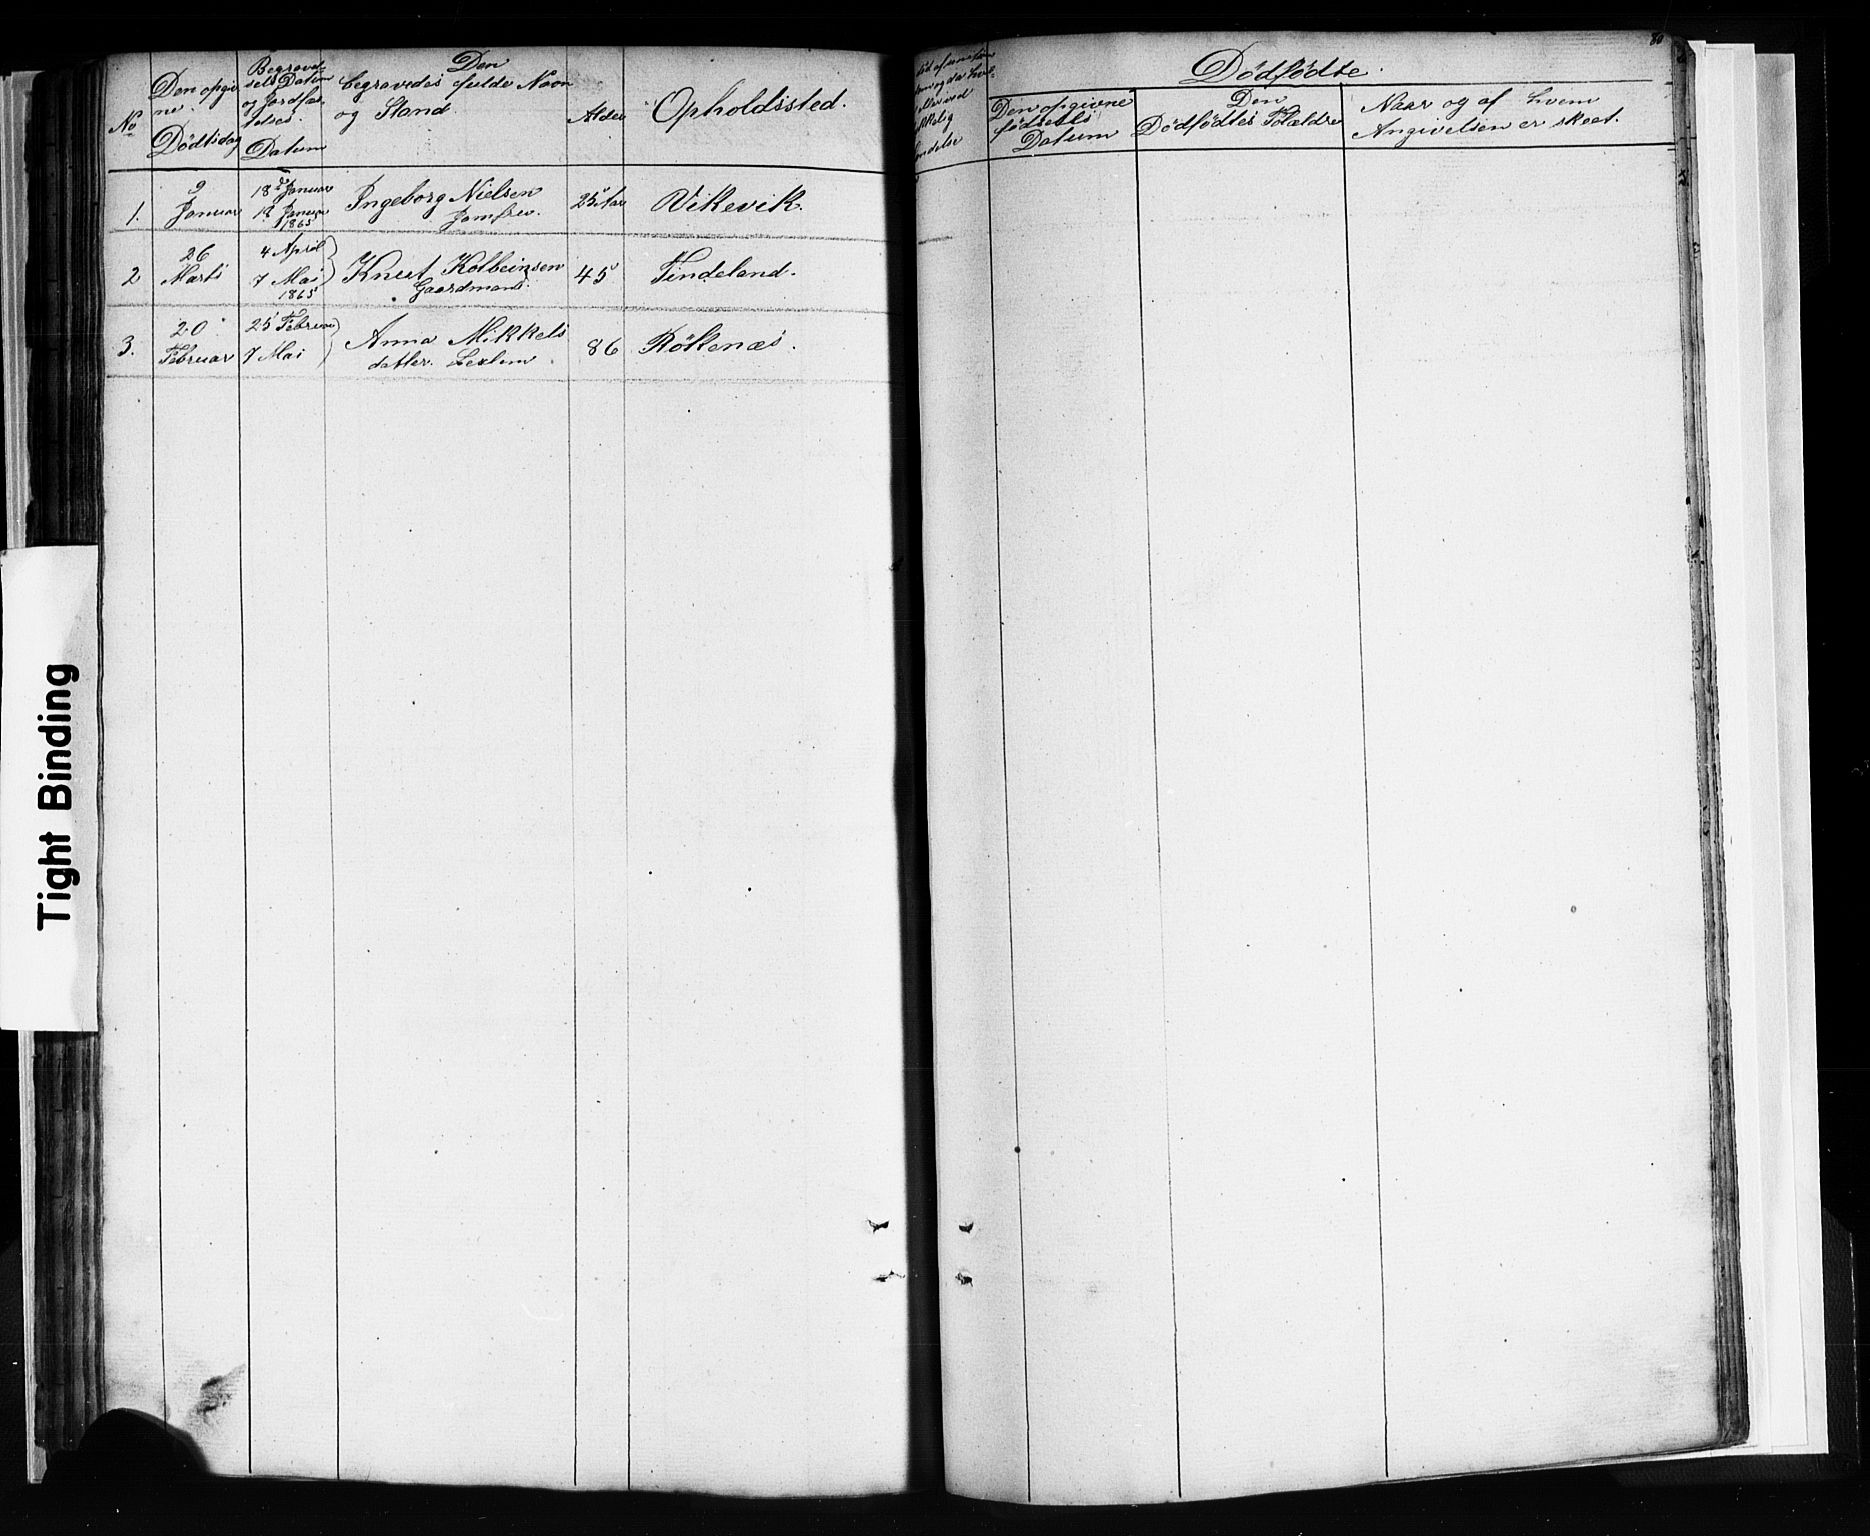 No
Den opgivne
Dödsdag
Begravelses Datum
og Jordfæstelses
Datum
Den
begravedes fulde Navn
og Stand
Alder
Opholdssted.
1.
9
Januar
18de Januar
19 Januar
1865
Ingeborg Nielsen
Jomfru.
25 Aar
Vikevik.
2
26
Marts
4 April
7 Mai
1865
Knut Kolbeinsen
Gaardmand.
45
Tindeland.
3.
20
Februar
25 Februar
7 Mai
Anna Mikkels
datter
86
Rötkenæs.
80
Dödfödte.
Den opgivne
födsels
Datum
Den
Dödfödtes Forældre
Naar og af hvem
Angivelsen er skeet.
Tight Binding